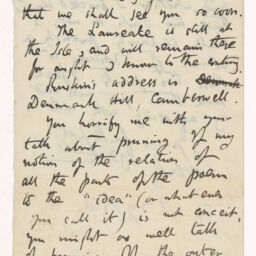 that we shall see you so soon.
The Laureate is still at
the Isle, and will remain there
for aught I know to the contrary.
Ruskin's address is
Denmark Hill, Camberwell.
You horrify me with your
talk about pruning. If my
notion of the relation of
all the parts of the poem
to the "idea" (or what ever
you call it) is not conceit,
you might as well talk
of the outer